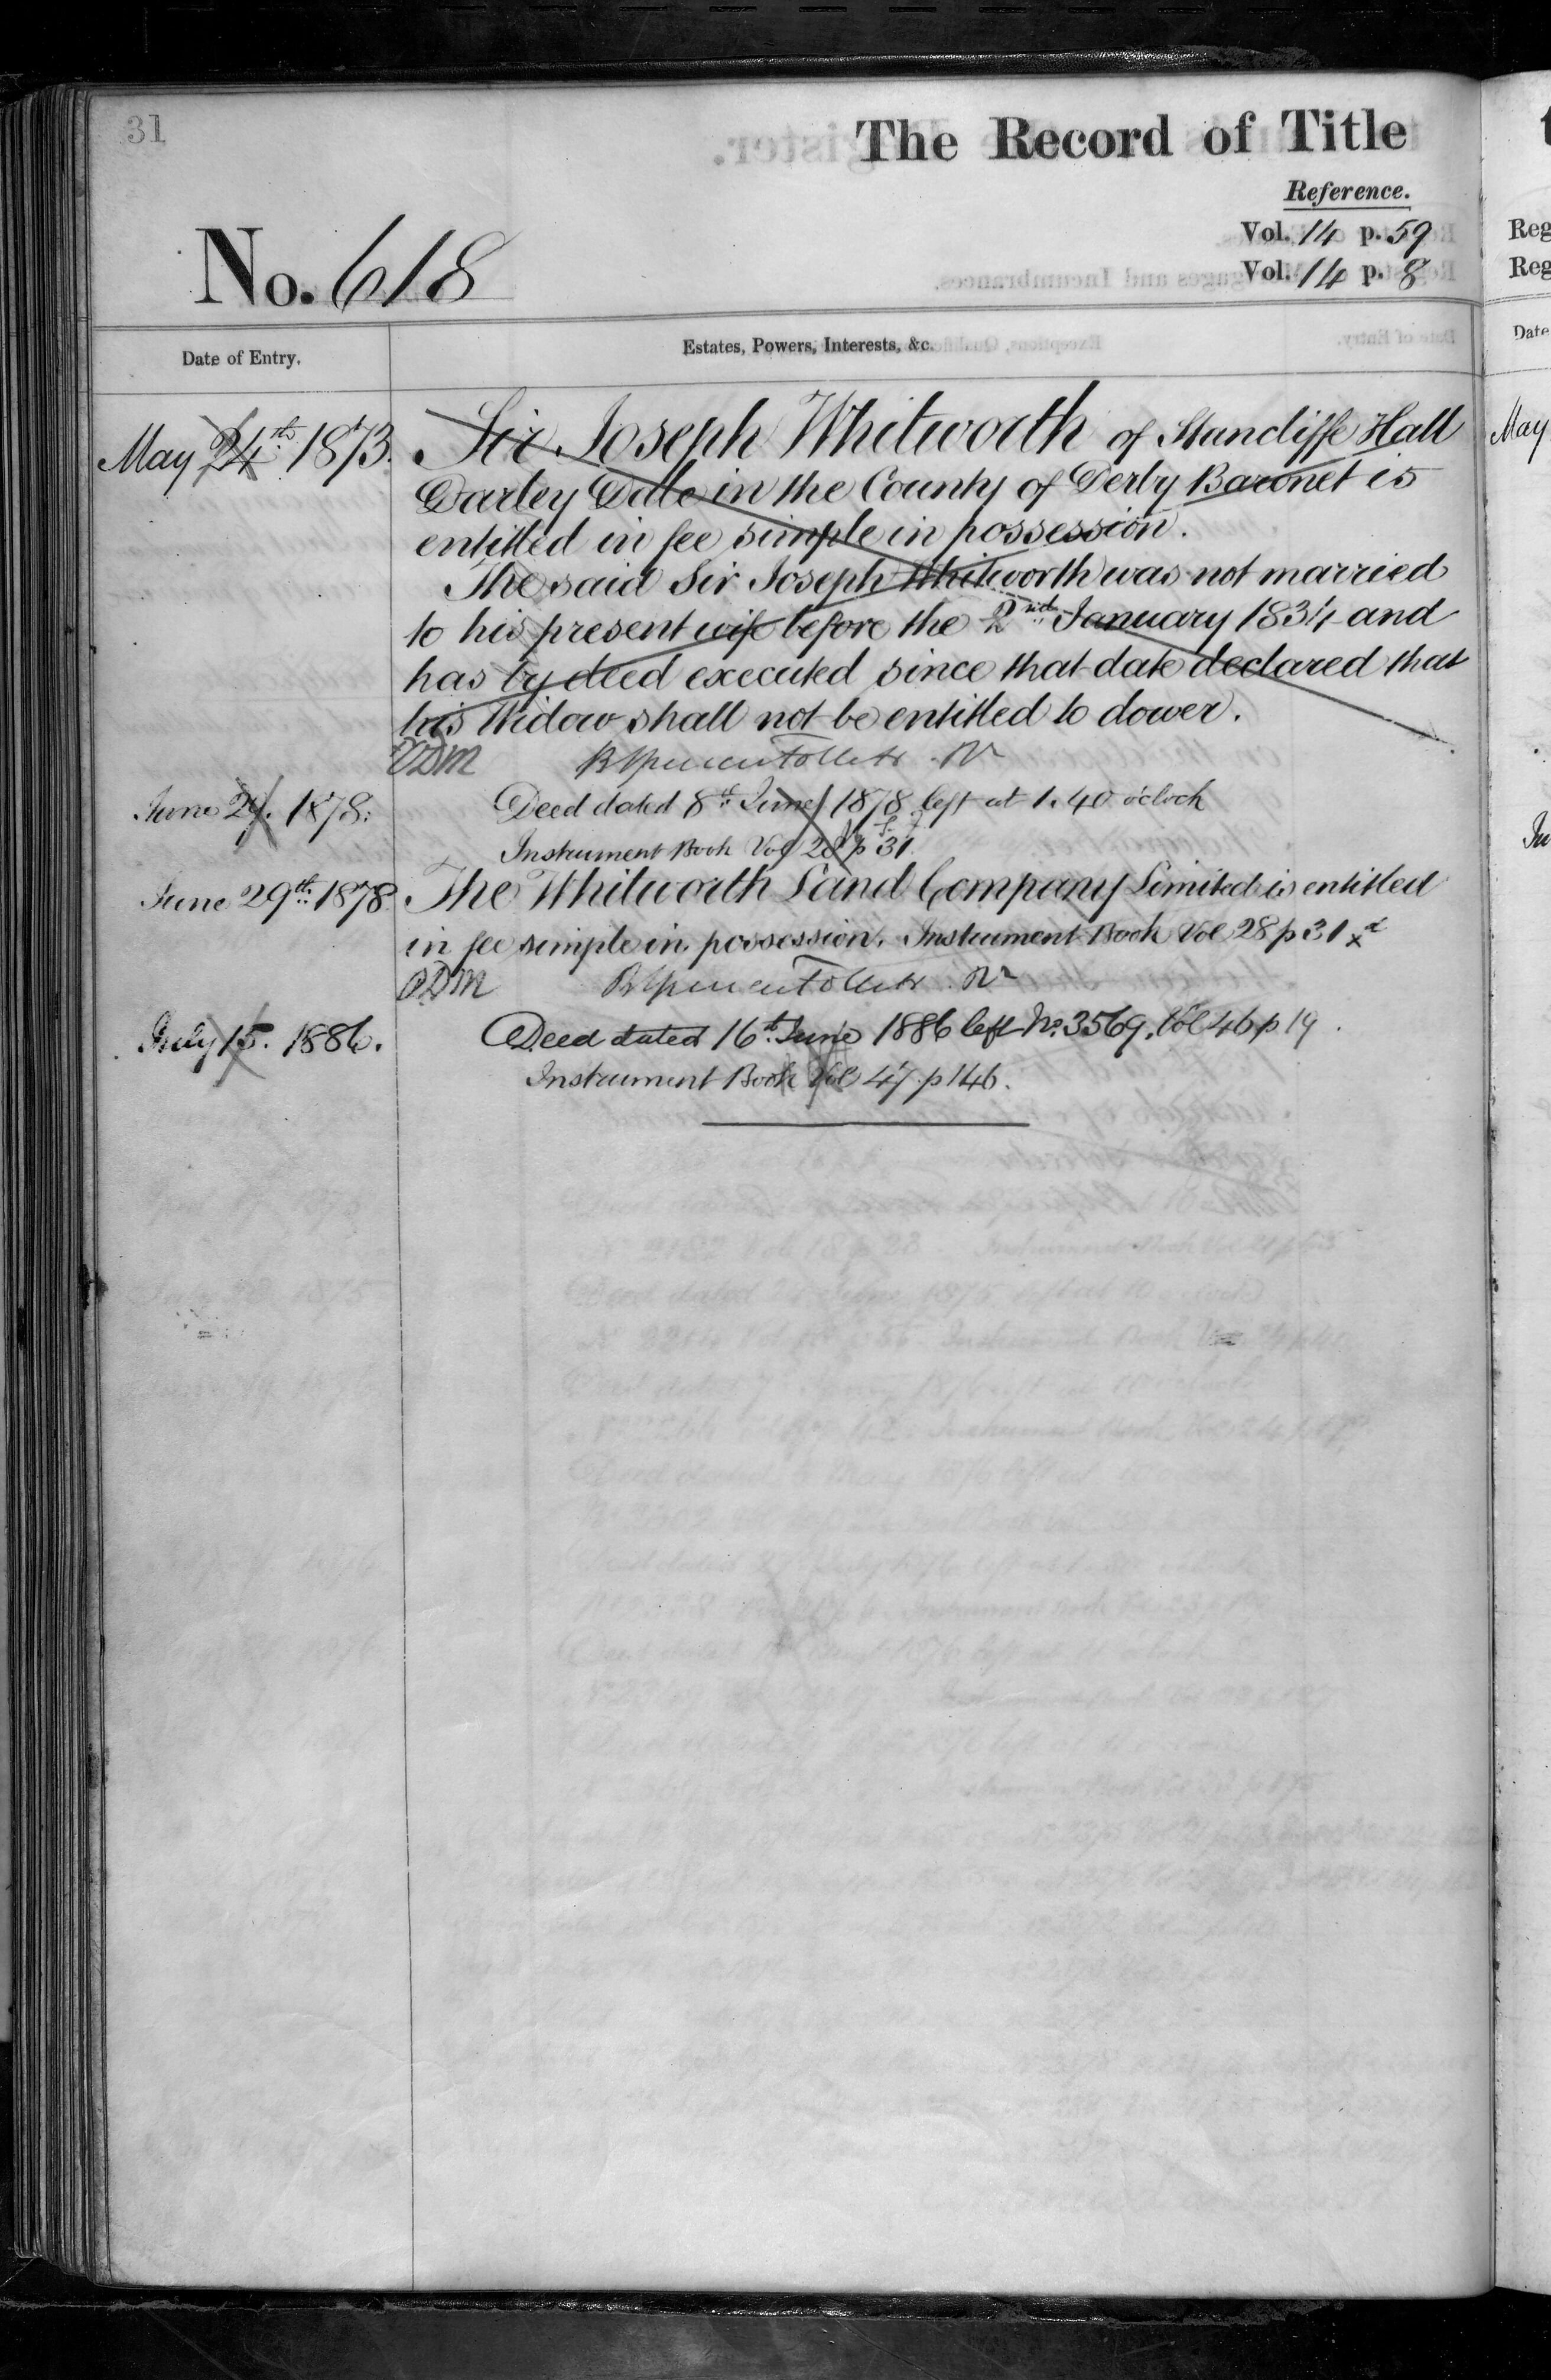 31
The Record of Title
Reference.
Vol. 14 p. 59
Vol. 14 p. 8
No. 618
Date of Entry.
Estates, Powers, Interests, &c.
May 24th 1873. Sir Joseph Whitworth of Stancliffe Hall
Darley Dale in the County of Derby Baronet is
entitled in fee simple in possession.
The said Sir Joseph Whitworth was not married
to his present wife before the 2nd January 1834 and
has by deed executed since that date declared that
his Widow shall not be entitled to dower.
June 29. 1878. Deed dated 8th June 1878 left at 1.40 o'clock
Instrument Book Vol 28 p 31.
June 29th 1878 The Whitworth Land Company Limited is entitled
in fee simple in possession. Instrument Book Vol 28 p 31
July 15. 1886. Deed dated 16th June 1886 left No. 3569. Vol 46 p 19.
Instrument Book Vol 47. p 146.
Reg
Reg
Date
May